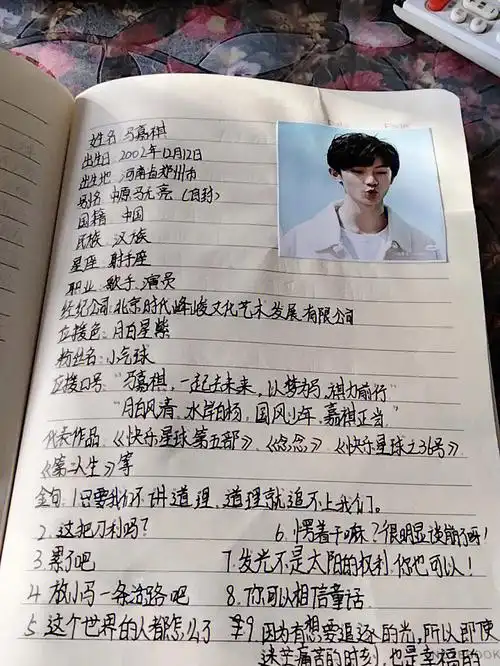 姓名 马嘉祺
出生日 2002年12月12日
出生地 河南省郑州市
别名 中原马尤亮（自封）
国籍 中国
民族 汉族
星座 射手座
职业 歌手、演员
经纪公司 北京时代峰峻文化艺术发展有限公司
应援色：月白星紫
粉丝名：小气球
应援口号："马嘉祺，一起去未来，以梦为马，祺力前行"
"月白风清，水岸白杨，国风少年，嘉祺正当"
代表作品：《快乐星球第五部》、《念念》、《快乐星球之36号》、
《第二人生》等
金句：1 只要我们不讲道理，道理就追不上我们。
2. 这把刀利吗？ 6. 愣着干嘛？很明显谈崩了呀！
3. 累了吧 7. 发光不是太阳的权利，你也可以！
4. 放小马一条活路吧 8. 你可以相信童话
5. 这个世界的人都怎么了 9. 因为有想要追逐的光，所以即使
迷茫痛苦的时刻，也是幸运的